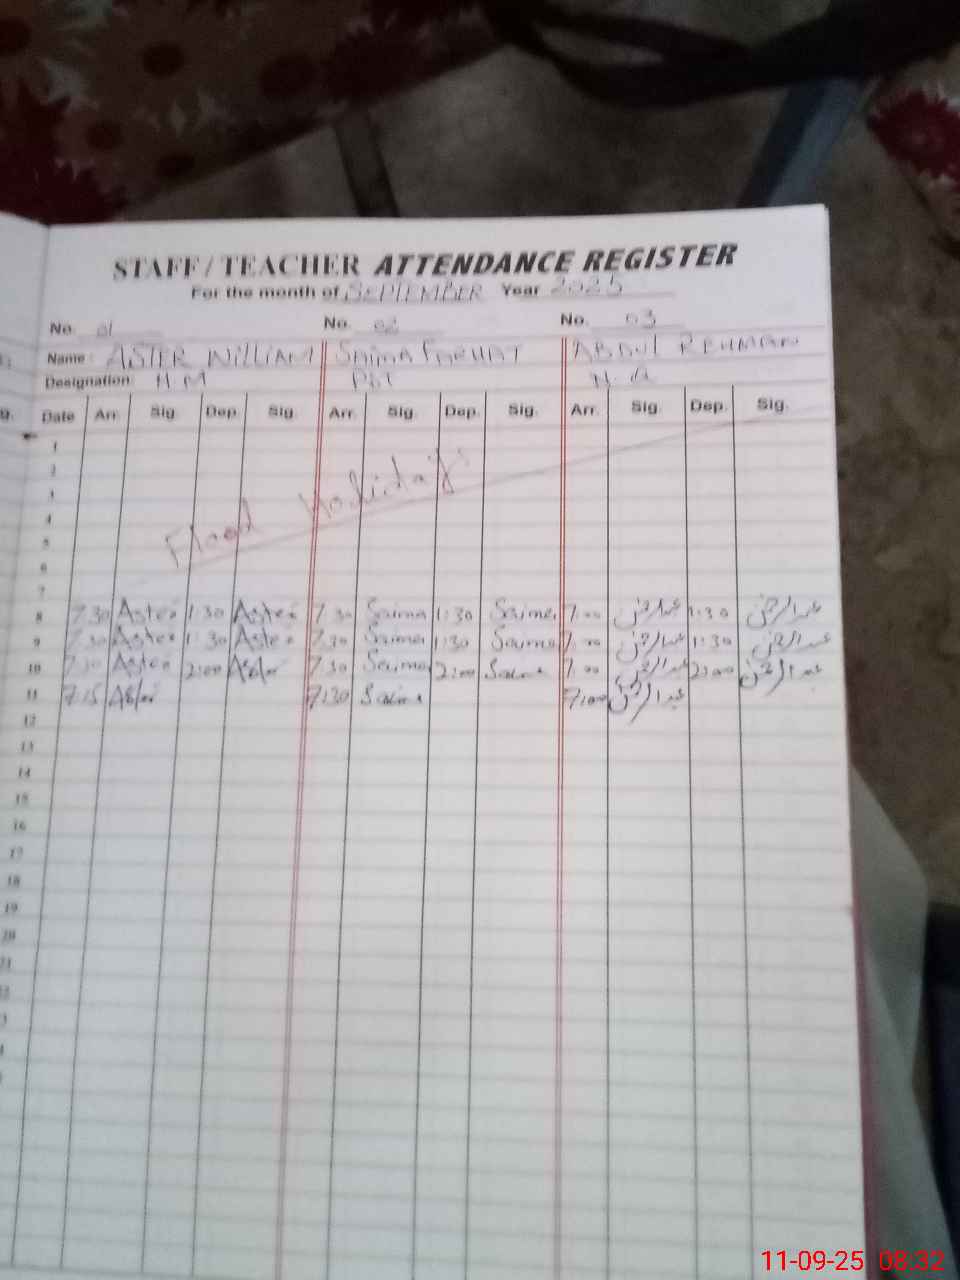 STAFF / TEACHER ATTENDANCE REGISTER
For the month of SEPTEMBER Year 2025
No. 01 No. 02 No. 03
Name : ASTER WILLIAM SAIMA FARHAT ABDUL REHMAN
Designation H M PST
Date Arr. Sig. Dep. Sig. Arr. Sig. Dep. Sig. Arr. Sig. Dep. Sig.
1
2
3
4
5
Flood Holidays
6
7
8 7:30 Aster 1:30 Aster 7:30 Saima 1:30 Saima 7:00 عبدالرحمن 1:30 عبدالرحمن
9 7:30 Aster 1:30 Aster 7:30 Saima 1:30 Saima 7:00 عبدالرحمن 1:30 عبدالرحمن
10 7:30 Aster 2:00 Aster 7:30 Saima 2:00 Saima 7:00 عبدالرحمن 2:00 عبدالرحمن
11 7:15 Aster 7:30 Saima 7:00 عبدالرحمن
12
13
14
15
16
17
18
19
20
21
11-09-25 08:32